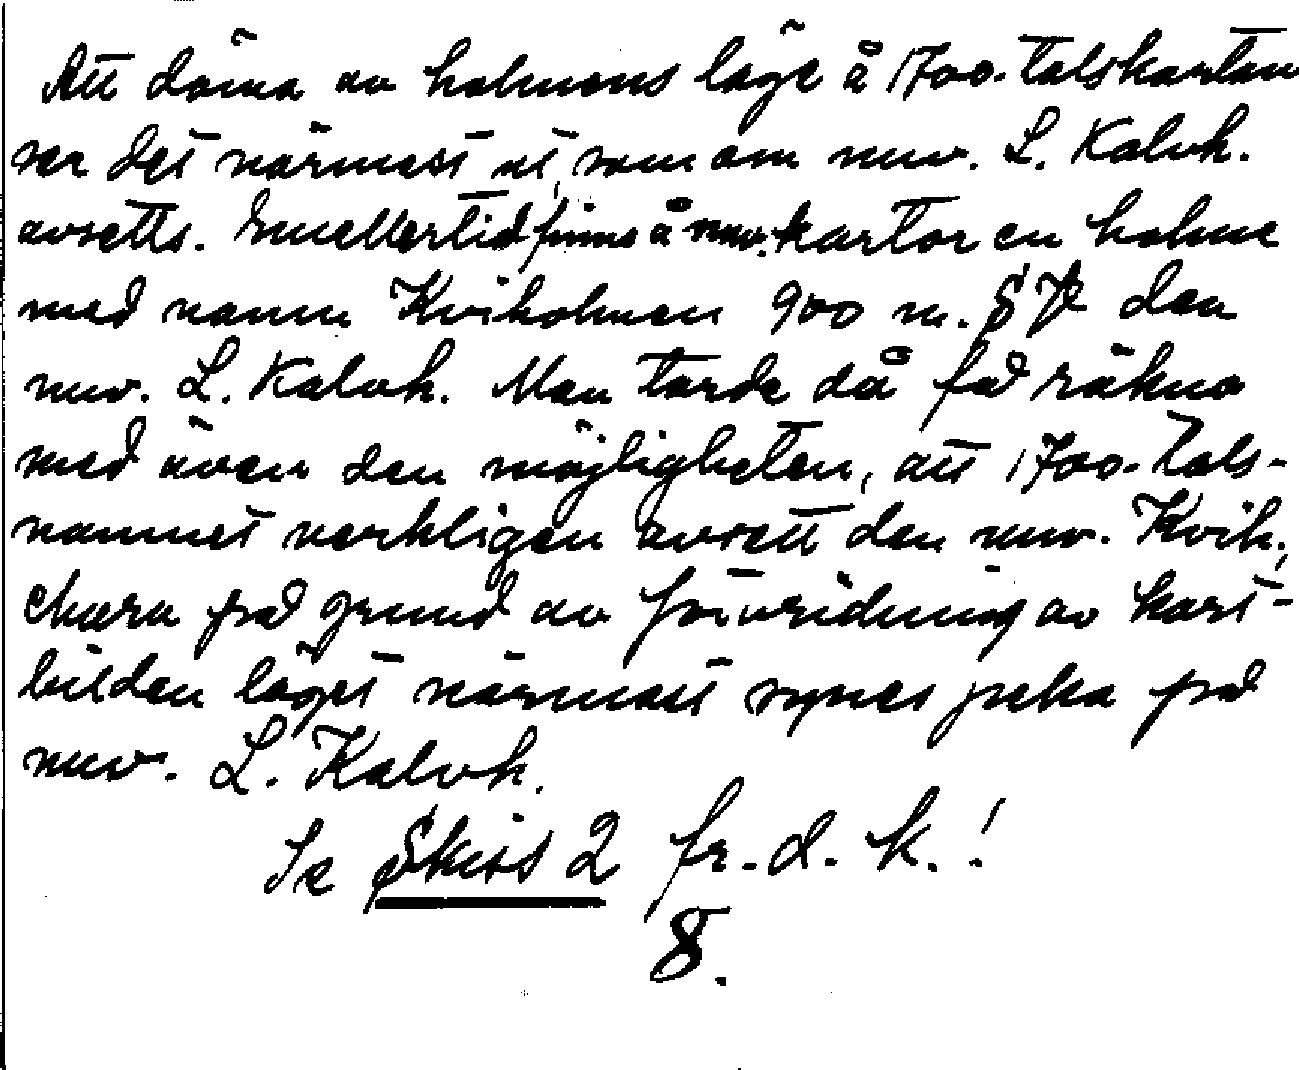 Att döma av holmens läge å 1700-talskartan
ser det närmast ut, som om nuv. L. Kalvh.
avsetts. Emellertid finns å nuv. kartor en holme
med namn Kviholmen 900 m. SV den
nuv. L. Kalvh. Man torde då få räkna
med även den möjligheten, att 1700-tals-
namnet verkligen avsett den nuv. Kvih.,
ehuru på grund av förvridning av kart-
bilden läget närmast synes peka på
nuv. L. Kalvh.
Se Skiss 2 fr. d. k.!
8.